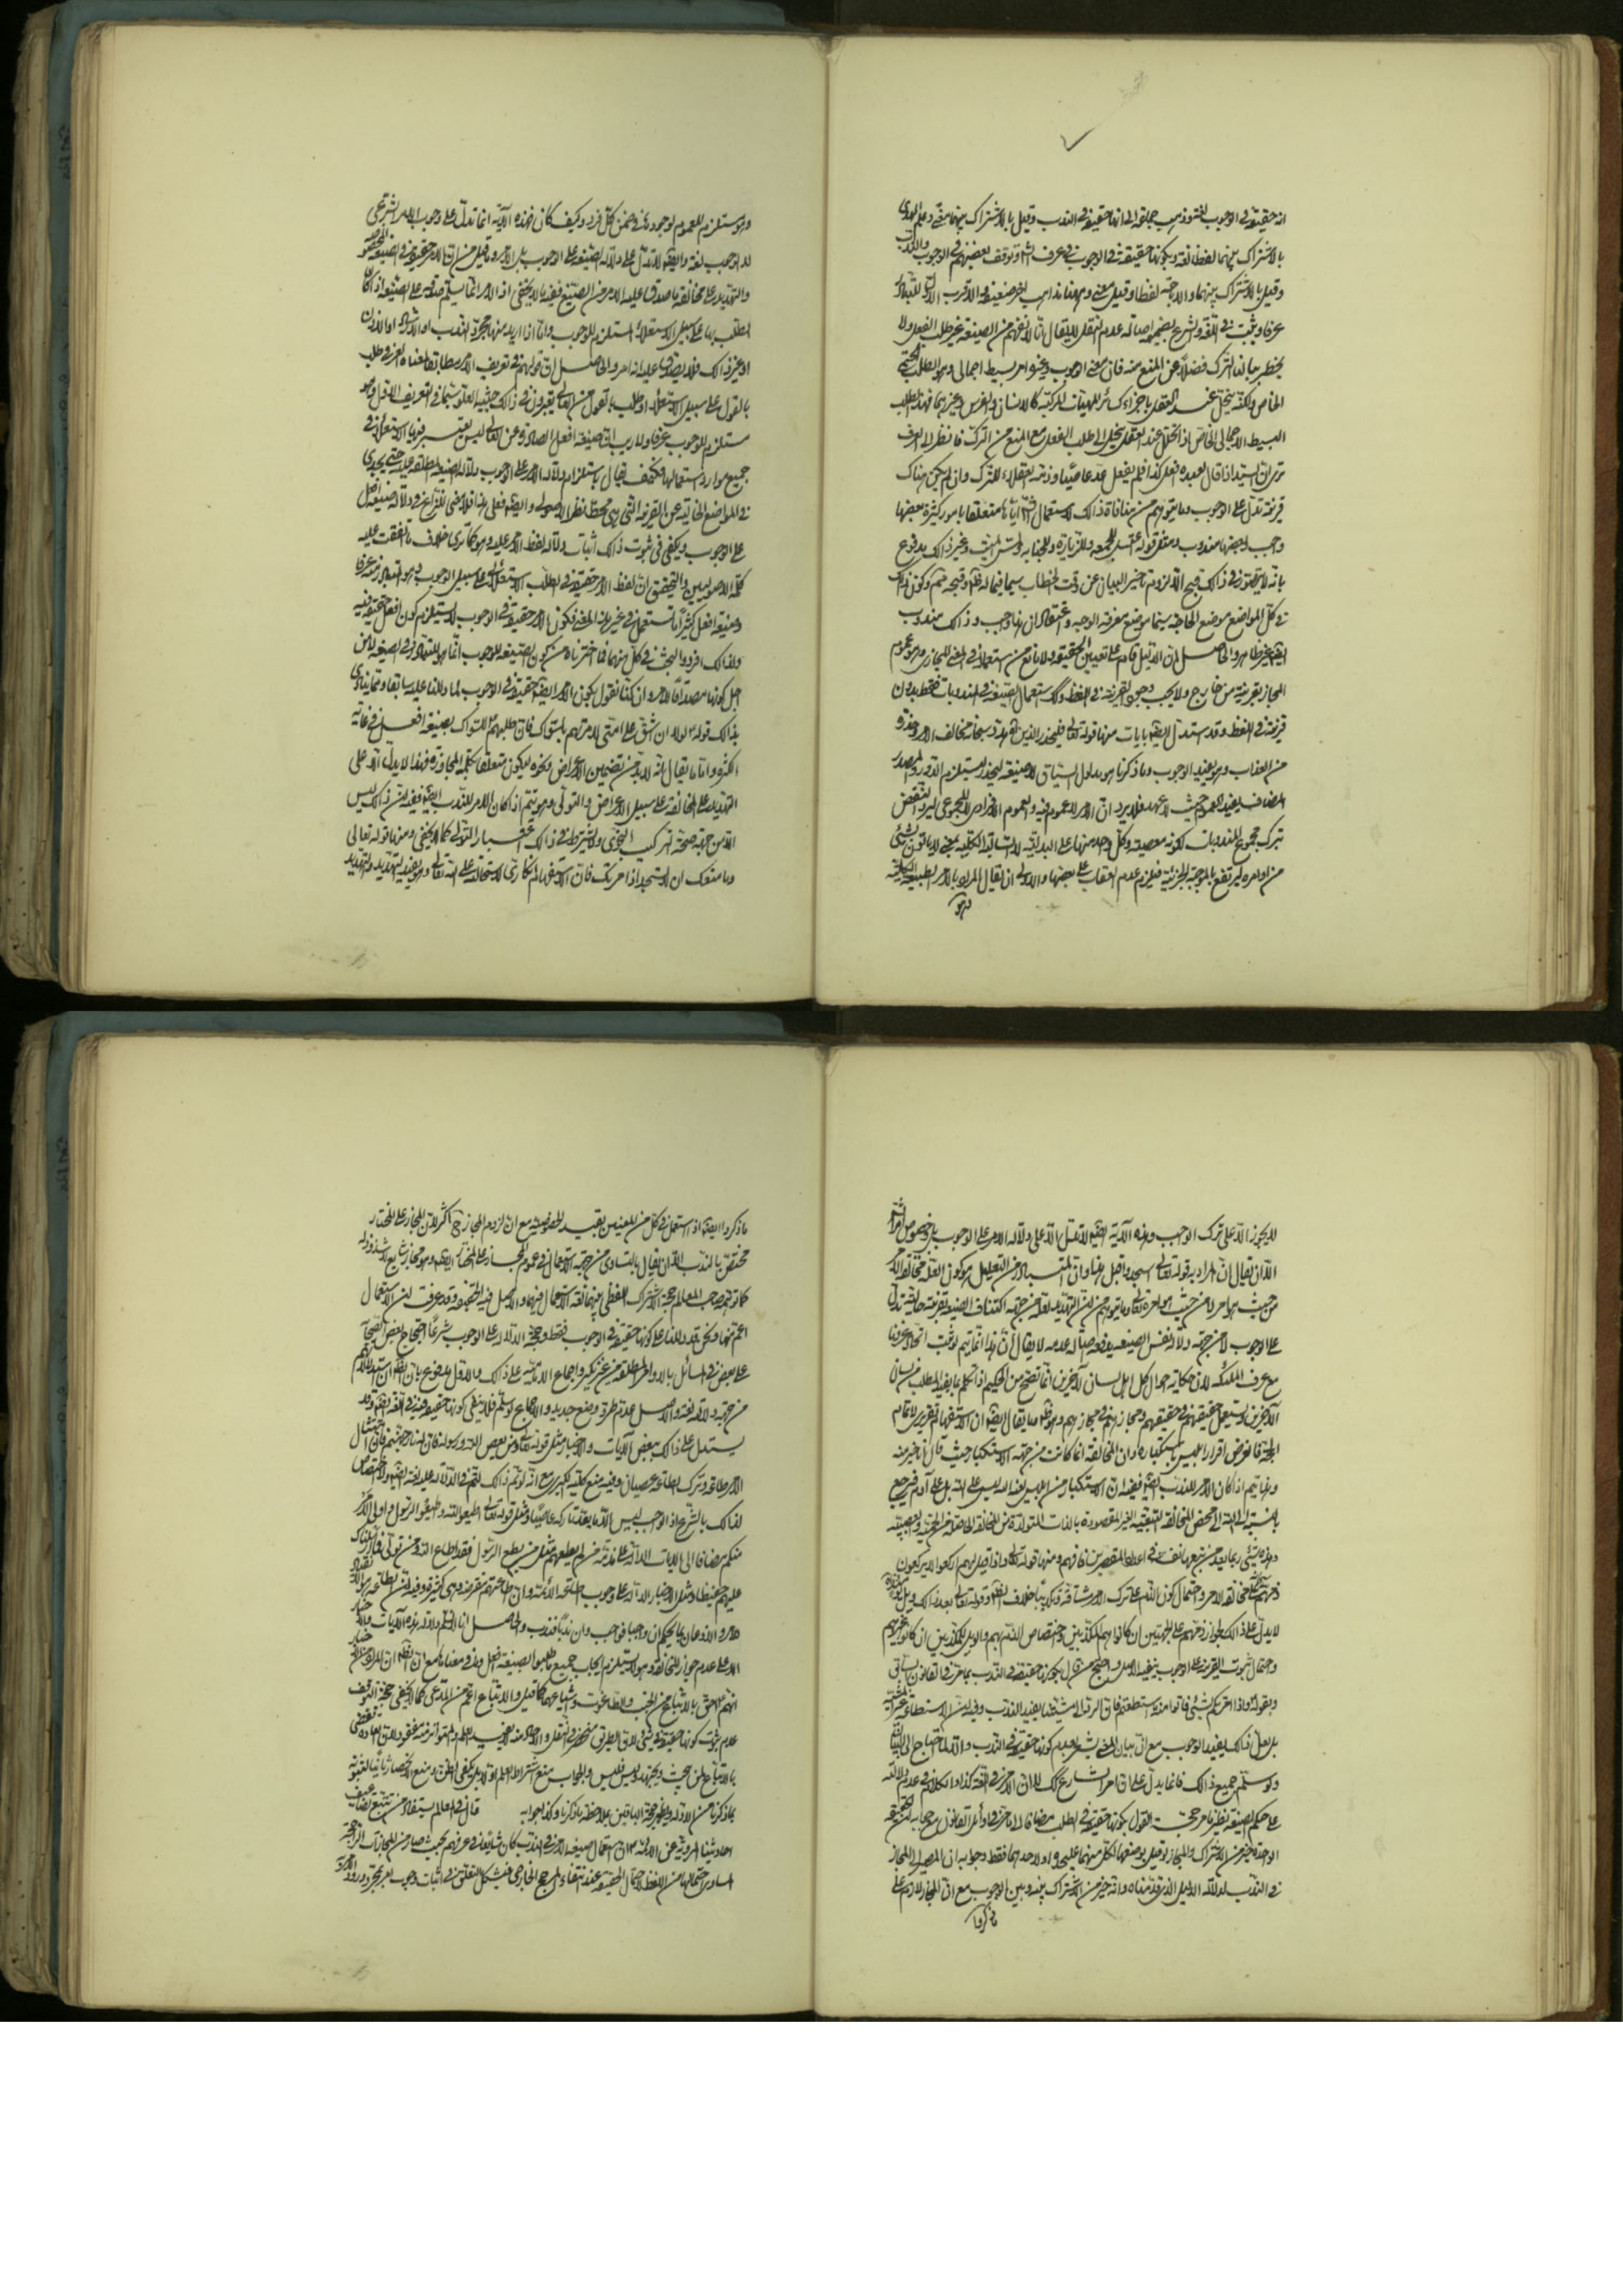 انه حقيقة في الوجوب لغة وذهب جماعة الى انها حقيقة في الندب وقيل بالاشتراك بينهما معنى وعلم الهدى
بالاشتراك بينهما لفظا لغة وبكونها حقيقة في الوجوب في عرف الشارع وتوقف بعضهم في الوجوب والندب
وقيل بالاشتراك بينهما والاباحة لفظا وقيل معنى وههنا مذاهب اخر ضعيفة والاقرب الاول للتبادر
عرفا ويثبت في اللغة والشرع بضميمة اصالة عدم النقل لا يقال انا لا نفهم من الصيغة غير طلب الفعل ولا
يخطر ببالنا الترك فضلا عن المنع منه فان معنى الوجوب وغيره امر بسيط اجمالي وهو الطلب الحتمي
الخاص ولكنه ينحل عند العقل باجزاء كسائر الماهيات المركبة كالانسان والفرس وغيرهما فهذا الطلب
البسيط الاجمالي الخاص اذا انحل عند العقل ينحل الى طلب الفعل مع المنع من الترك فانظر الى العرف
ترى ان السيد اذا قال لعبده افعل كذا فلم يفعل عد عاصيا وذمه العقلاء للترك وان لم يكن هناك
قرينة تدل على الوجوب وما يتوهم من منافاة ذلك لاستعمال الشارع اياها متعلقا بامور كثيرة بعضها
واجب وبعضها مندوب ومثل قوله اغتسل للجمعة وللزيارة وللجنابة ولمس الميت وغير ذلك مدفوع
بانه لا محذور في ذلك قبح الا لزوم تاخير البيان عن وقت الخطاب سيما فيما له ظاهر وقبحه مم وكون ذلك
في كل المواضع موضع الحاجة سيما موضع معرفة الوجه واعتقاد ان هذا واجب وذلك مندوب
ايضا غير ظاهر والحاصل ان الدليل قام على تعيين الحقيقة ولا مانع من استعمال في المعنى المجازي وهو عموم
المجاز بقرينة من خارج ولا يجب وجود القرينة في اللفظ وكذا استعمال الصيغة في المندوبات فقط بدون
قرينة في اللفظ وقد استدل ايضا بايات منها قوله تعالى فليحذر الذين الاية هدد سبحانه مخالف الامر وحذره
من العذاب وهو يفيد الوجوب وما ذكرنا هو مدلول السياق لا صيغة ليحذر ليستلزم الدور والمصدر
المضاف يفيد العموم حيث لا عهد فلا يرد ان الامر لا عموم فيه والعموم الافرادي لا المجموعي ليرد النقض
بترك مجموع المندوبات لكونه معصية وكل واحد منها على البدلية لا السالبة الكلية بمعنى لا ياتون بشيء
من اوامره ليرتفع بالموجبة الجزئية فيلزم عدم العقاب على بعضها والاولى ان يقال المراد بالامر الطبيعة الكلية
وهو
وهو مستلزم للعموم لوجوده في ضمن كل فرد وكيف كان فهذه الآية انما تدل على وجوب الامر الشرعي
لا الوجوب لغة وايضا لا تدل على دلالة الصيغة على الوجوب بل الامر وما قيل من ان الامر حقيقة في الصيغة المخصوصة
والتهديد على مخالفة ما صدق عليه الامر من الصيغ ففيه ما لا يخفى اذ الامر انما يسلم صدقه على الصيغة اذا كان
الطلب بها على سبيل الاستعلاء المستلزم للوجوب واما اذا اريد منها مجرد الندب او الارشاد او الاذن
او غير ذلك فلا يصدق عليه انه امر والحاصل ان قولهم في تعريف الامر مطابقا لمعناه العرفي طلب
بالقول على سبيل الاستعلاء او طلب بالقول من العالي يعتبرون في ذلك حيثية العلو سيما في التعريف الاول وهو
مستلزم للوجوب عرفا ولا ريب ان صيغة افعل الصادرة عن العالي ليس يعتبر فيها الاستعلاء في
جميع موارد استعمالها فكيف يقال باستلزام دلالة الامر على الوجوب دلالة الصيغة المطلقة عليه حتى يجدي
في المواضع الخالية عن القرينة التي هي محط نظر الاصولي وايضا فعلى هذا فلا معنى للنزاع في دلالة صيغة افعل
على الوجوب ويكفي في ثبوت ذلك اثبات دلالة لفظ الامر عليه وهو كما ترى خلاف ما اتفقت عليه
كلمة الاصوليين والتحقيق ان لفظ الامر حقيقة في الطلب الاستعلائي على سبيل الوجوب وهو المتبادر منه عرفا
وصيغة افعل كثيرا ما تستعمل في غير هذا المعنى فكون الامر حقيقة في الوجوب لا يستلزم كون افعل حقيقة فيه
ولذلك افردوا البحث في كل منهما فما اخترناه من كون الصيغة للوجوب انما هو للتبادر في الصيغة لا من
اجل كونها مصداقا للامر وان كنا نقول بكون الامر ايضا حقيقة في الوجوب لما دللنا عليه سابقا ومما ينادي
بذلك قوله لولا ان اشق على امتي لامرتهم بالسواك فان طلبهم للسواك بصيغة افعل في غاية
الكثرة واما ما يقال انه لا بد من تضمين الاعراض ونحوه ليكون متعلقا بكلمة المجاوزة فهذا لا يدل الا على
التهديد على المخالفة على سبيل الاعراض والتولي وهو يتم اذا كان الامر للندب ايضا ففيه ان ذلك ليس
الا من جهة صحة التركيب النحوي ولا يشترط في ذلك اعتبار التولي كما لا يخفى ومنها قوله تعالى
وما منعك ان لا تسجد اذ امرتك فان الاستفهام انكاري لاستحالته على الله تعالى وهو يفيد التهديد والتهديد
لا يجوز الا على ترك الواجب وهذه الآية ايضا لا تدل الا على دلالة الامر على الوجوب بل وخصوص امر الشارع
الا ان يقال ان المراد به قوله تعالى اسجدوا قبل هذا وان المتبادر من التعليل هو كون العلة مخالفة الامر
من حيث هو امر لا من حيث هو امره تعالى وما يتوهم من ان التهديد لعله من جهة اكتناف الصيغة بقرينة حالية تدل
على الوجوب لا من جهة دلالة نفس الصيغة يدفعه اصالة عدمه لا يقال ان هذا انما يتم لو ثبت اتحاد عرفنا
مع عرف الملئكة لان حكاية احوال كل اهل لسان لآخرين انما تصح من الحكيم اذا تكلم بما يفيد المطلب من لسان
الآخرين ويستعمل حقيقتهم في حقيقتهم ومجازهم في مجازهم وهو ظاهر وما يقال ايضا ان الاستفهام تقريري لاتمام
الحجة فالغرض اقرار ابليس باستكباره وان المخالفة انما كانت من جهة الاستكبار حيث قال انا خير منه
وهذا يتم اذا كان الامر للندب ايضا ففيه ان الاستكبار من ابليس لعنه الله ليس على الله بل على آدم فيرجع
بالنسبة الى الله الى محض المخالفة التبعية الغير المقصودة بالذات المتولدة من المخالفة الحاصلة من الحمية والعصبية
وهذه شيء ربما يعد من يتبعها نفسه في اعداد المقصرين فافهم ومنها قوله تعالى واذا قيل لهم اركعوا لا يركعون
ذمهم على مخالفة الامر واحتمال كون الذم على ترك الامر مشاقة وتكذيبا خلاف الظاهر وقوله تعالى بعد ذلك ويل يومئذ
لا يدل على ذلك لجواز ذمهم على الجهتين ان كانوا هم المكذبين واختصاص الذم بهم والويل للمكذبين ان كانوا غيرهم
واحتمال ثبوت القرينة على الوجوب ينفيه الاصل واحتج من قال بكونها حقيقة في الندب بما مر في القانون السابق
وبقوله واذا امرتكم بشيء فاتوا منه ما استطعتم فان الرد الى مشيتنا يفيد الندب وفيه ان الاستطاعة غير المشية
بل لعل ذلك يفيد الوجوب مع ان بيان المعنى يشعر بعدم كونها حقيقة في الندب والا لما احتاج الى البيان
ولو سلم جميع ذلك فانما يدل على ان امر الشارع كذلك لا ان الامر في اللغة كذا والكلام في عدم دلالته
على حكم الصيغة نظير ما مر حجة القول بكونها حقيقة في الطلب مضافا الى ما مر في اوائل القانون مع جوابه ان الحقيقة
الواحدة خير من الاشتراك والمجاز لو قيل بوضعها لكل منهما على حدة او لاحدهما فقط وجوابه ان المصير الى المجاز
في الندب لدلالة الدليل الذي قدمناه وانه خير من الاشتراك بينه وبين الوجوب مع ان المجاز لازم على
ما ذكروا
ما ذكروا ايضا اذا استعمل في كل من المعنيين بقيد الخصوصية مع ان لزوم المجاز ح اكثر لان المجاز على المختار
مختص بالندب الا ان يقال بالتساوي من جهة استعمال في عموم المجاز على المختار ايضا وهو مجاز شايع لا شذوذ له
كما توهم صاحب المعالم حجة الاشتراك اللفظي بينهما لغة الاستعمال فيهما والاصل فيه الحقيقة وقد عرفت ان الاستعمال
اعم منهما ونحن قد دللنا على كونها حقيقة في الوجوب فقط وحجة الدلالة على الوجوب شرعا احتجاج بعض الصحابة
على بعض في المسائل بالاوامر المطلقة من غير نكير واجماع الامامية على ذلك والاول مدفوع بان الظاهر ان استدلالهم
من جهة دلالة لغة والاصل عدم طرو وضع جديد والاجماع لو سلم فلا ينفي كونها حقيقة فيه في اللغة ايضا وقد
يستدل على ذلك ببعض الآيات والاخبار مثل قوله تعالى ومن يعص الله ورسوله فان له نار جهنم فان امتثال
الامر طاعة وترك الطاعة عصيان وفيه منع كلية الكبرى مع انه لو تم ذلك لتم في الدلالة عليه لغة ايضا ولا اختصاص
لذلك بالشرع اذ الواجب ليس الا ما يعد تاركه عاصيا ومثل قوله تعالى اطيعوا الله واطيعوا الرسول واولي الامر
منكم مضافا الى الايات الدالة على مذمة من لم يطعهم مثل من يطع الرسول فقد اطاع الله ومن تولى فما ارسلناك
عليهم حفيظا ومثل الاخبار الدالة على وجوب اطاعة الائمة وان طاعتهم مفترضة وهي كثيرة وفيه ان الطاعة هو الانقياد
للامر والاذعان بما يحكم ان واجبا فوجب وان ندبا فندب والحاصل انا لا نسلم دلالة هذه الآيات والاخبار
الا على عدم جواز المخالفة وهو لا يستلزم ايجاب جميع ما طلبوا بصيغة افعل وما في معناها مع ان الظاهر ان المراد من الاخبار
انهم احق بالاتباع من الجبت والطاغوت واشياعهما كما قيل والاتباع اعم من المدعى كما لا يخفى حجة التوقف
عدم ثبوت كونها حقيقة في شيء لان الطريق منحصر في النقل والآحاد منه لا يفيد العلم والمتواتر منه مفقود لان العادة تقضي
بالاتباع لمن يبحث ويجتهد وليس فليس والجواب منع اشتراط العلم اولا بل يكفي الظن ومنع الانحصار ثانيا لثبوته
بما ذكرنا من الادلة ويظهر حجة الباقين بملاحظة ما ذكرنا وكذا جوابه قال في المعالم يستفاد من تتبع تضاعيف
احاديثنا المروية عن الائمة ان استعمال صيغة الامر في الندب كان شايعا في عرفهم بحيث صار من المجازات الراجحة
المساوي احتمالها من اللفظ لاحتمال الحقيقة عند انتفاء المرجح الخارجي فيشكل التعلق في اثبات وجوب امر بمجرد ورود الامر به